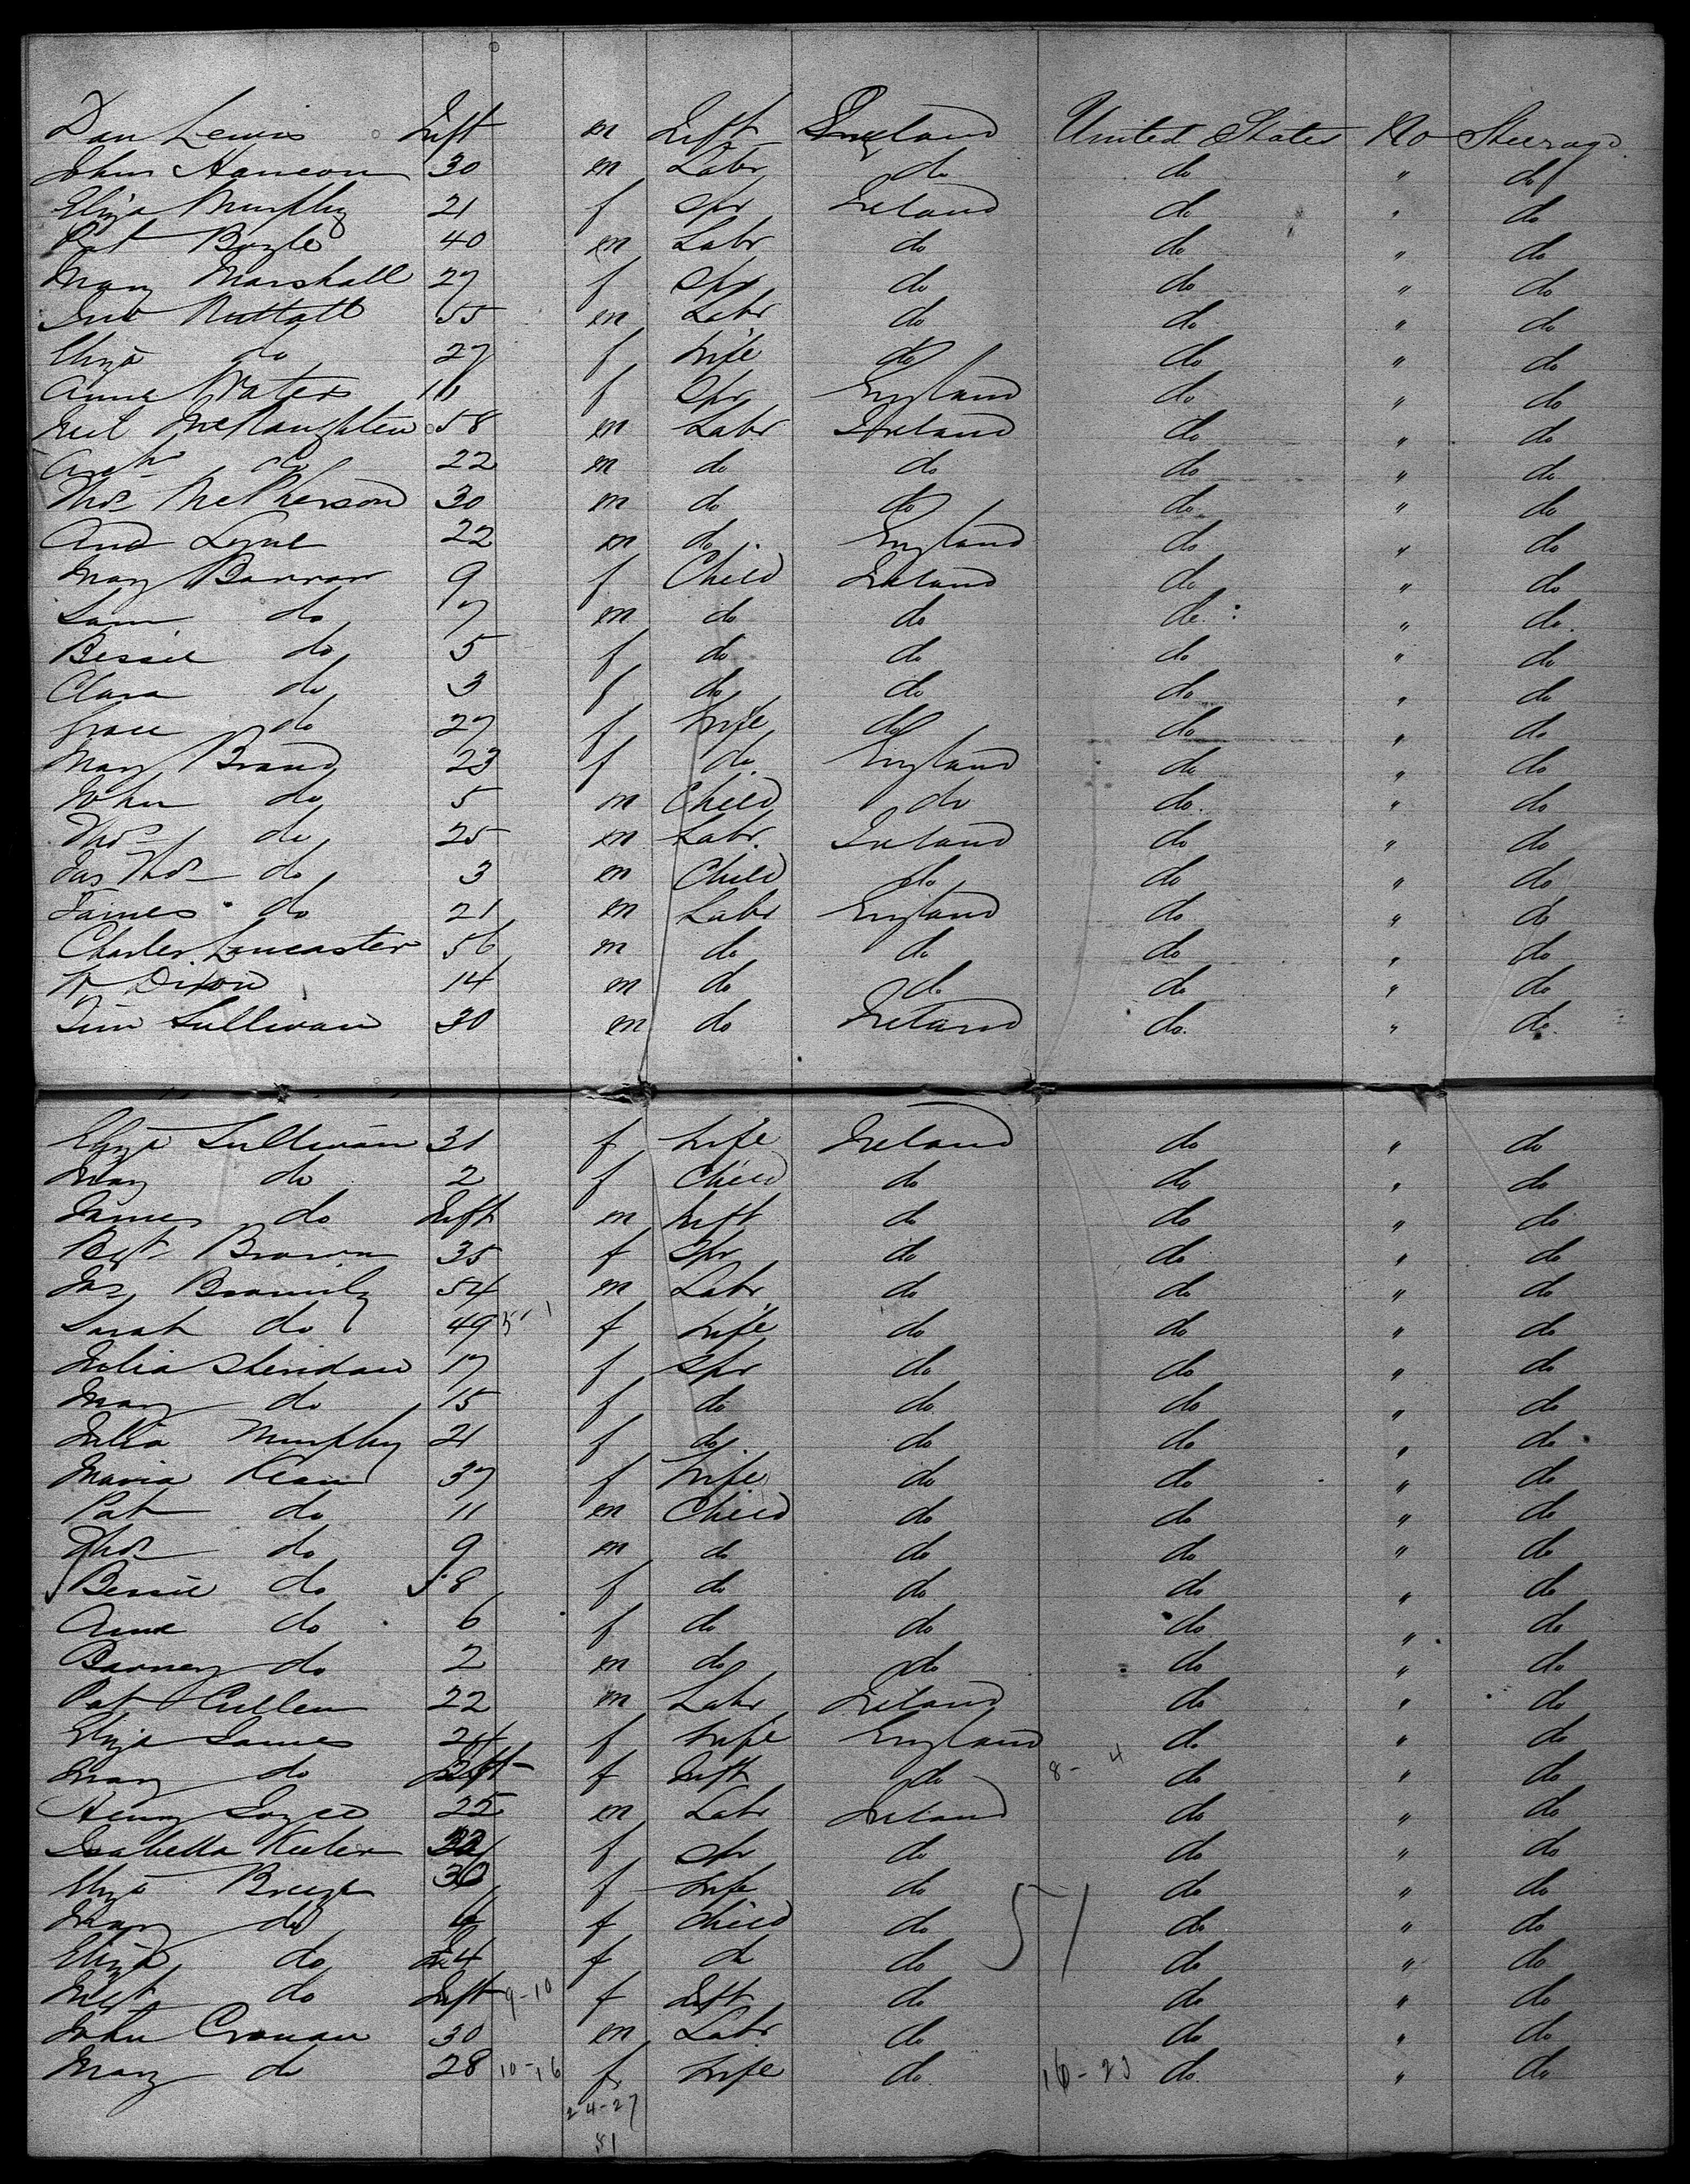 Dan Lewis Inft m Inft England United States No Steerage
John Hanson 30 m Labr do do " do
Eliza Murphy 21 f Spr Ireland do " do
Pat Boyle 40 m Labr do do " do
Mary Marshall 27 f Spr do do " do
Jno Nuttall 55 m Labr do do " do
Eliza do 27 f Wife do do " do
Anne Waters 11 f Spr England do " do
Neil McNaughten 58 m Labr Ireland do " do
Arch do 22 m do do do " do
Thos McPherson 30 m do do do " do
And Lyne 22 m do England do " do
Mary Barron 9 f Child Ireland do " do
Sam do 7 m do do do " do
Bessie do 5 f do do do " do
Clara do 3 f do do do " do
Grace do 27 f Wife do do " do
Mary Brand 23 f do England do " do
John do 5 m Child do do " do
Thos do 25 m Labr Ireland do " do
Jas Thos do 3 m Child do do " do
James do 21 m Labr England do " do
Charles Lancaster 56 m do do do " do
W Dixon 14 m do do do " do
Tim Sullivan 30 m do Ireland do " do
Eliza Sullivan 31 f Wife Ireland do " do
Mary do 2 f Child do do " do
James do Inft m Inft do do " do
Bgt Brown 35 f Spr do do " do
Jas 54 m Labr do do " do
Sarah do 49 f Wife do do " do
Julia Sheridan 17 f Spr do do " do
Mary do 15 f do do do " do
Julia Murphy 21 f do do do " do
Maria Kean 37 f Wife do do " do
Pat do 11 m Child do do " do
Thos do 9 m do do do " do
Bessie do 8 f do do do " do
Anne do 6 f do do do " do
Barney do 2 m do do do " do
Pat Cullen 22 m Labr Ireland do " do
Eliza James 24 f Wife England do " do
Mary do Inft f Inft do 8-4 do " do
Henry Joyce 25 m Labr Ireland do " do
Isabella f Spr do do " do
Eliza Breeze 30 f Wife do 51 do " do
Mary do f Child do do " do
Eliza do 4 f do do do " do
Mgt do Inft 9-10 f Inft do do " do
John Cronan 30 m Labr do do " do
Mary do 28 10-16 f Wife do 16-23 do " do
24-27
51